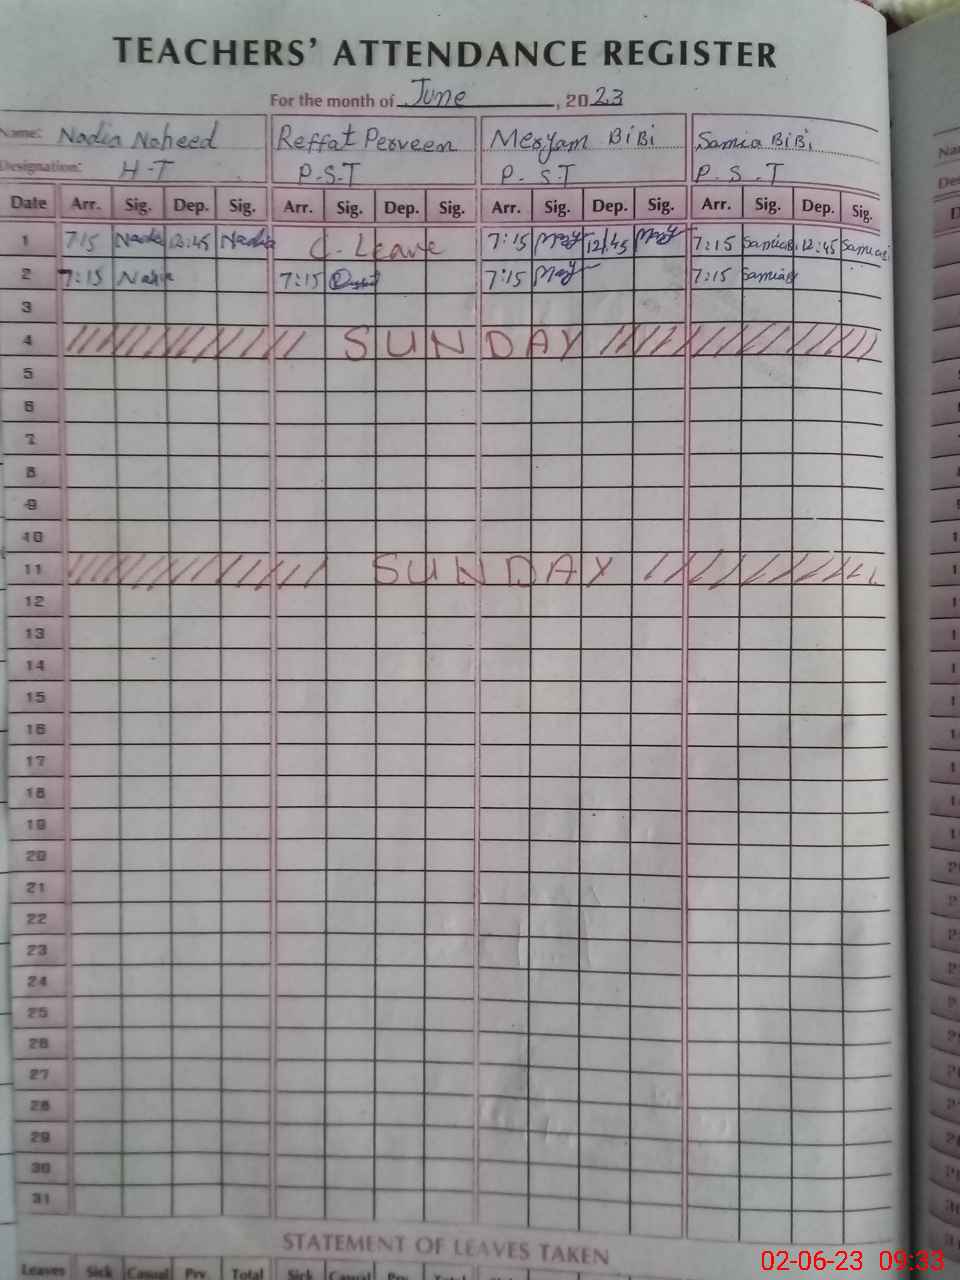 TEACHERS' ATTENDANCE REGISTER
For the month of June, 2023
Name: Nadia Naheed Reffat Perveen Meryam BiBi Samia BiBi
Designation: H-T P-S-T P. ST P. S. T
Date Arr. Sig. Dep. Sig. Arr. Sig. Dep. Sig. Arr. Sig. Dep. Sig. Arr. Sig. Dep. Sig.
1 7:15 Nadia 12:45 Nadia C-Leave 7:15 12:45 7:15 Samia 12:45 Samia
2 7:15 Nadia 7:15 7:15 7:15 Samia
3
4 SUNDAY
5
6
7
8
9
10
11 SUNDAY
12
13
14
15
16
17
18
19
20
21
22
23
24
25
26
27
28
29
30
31
STATEMENT OF LEAVES TAKEN
Leaves Sick Casual Prv. Total Sick Casual Prv. Total
02-06-23 09:33